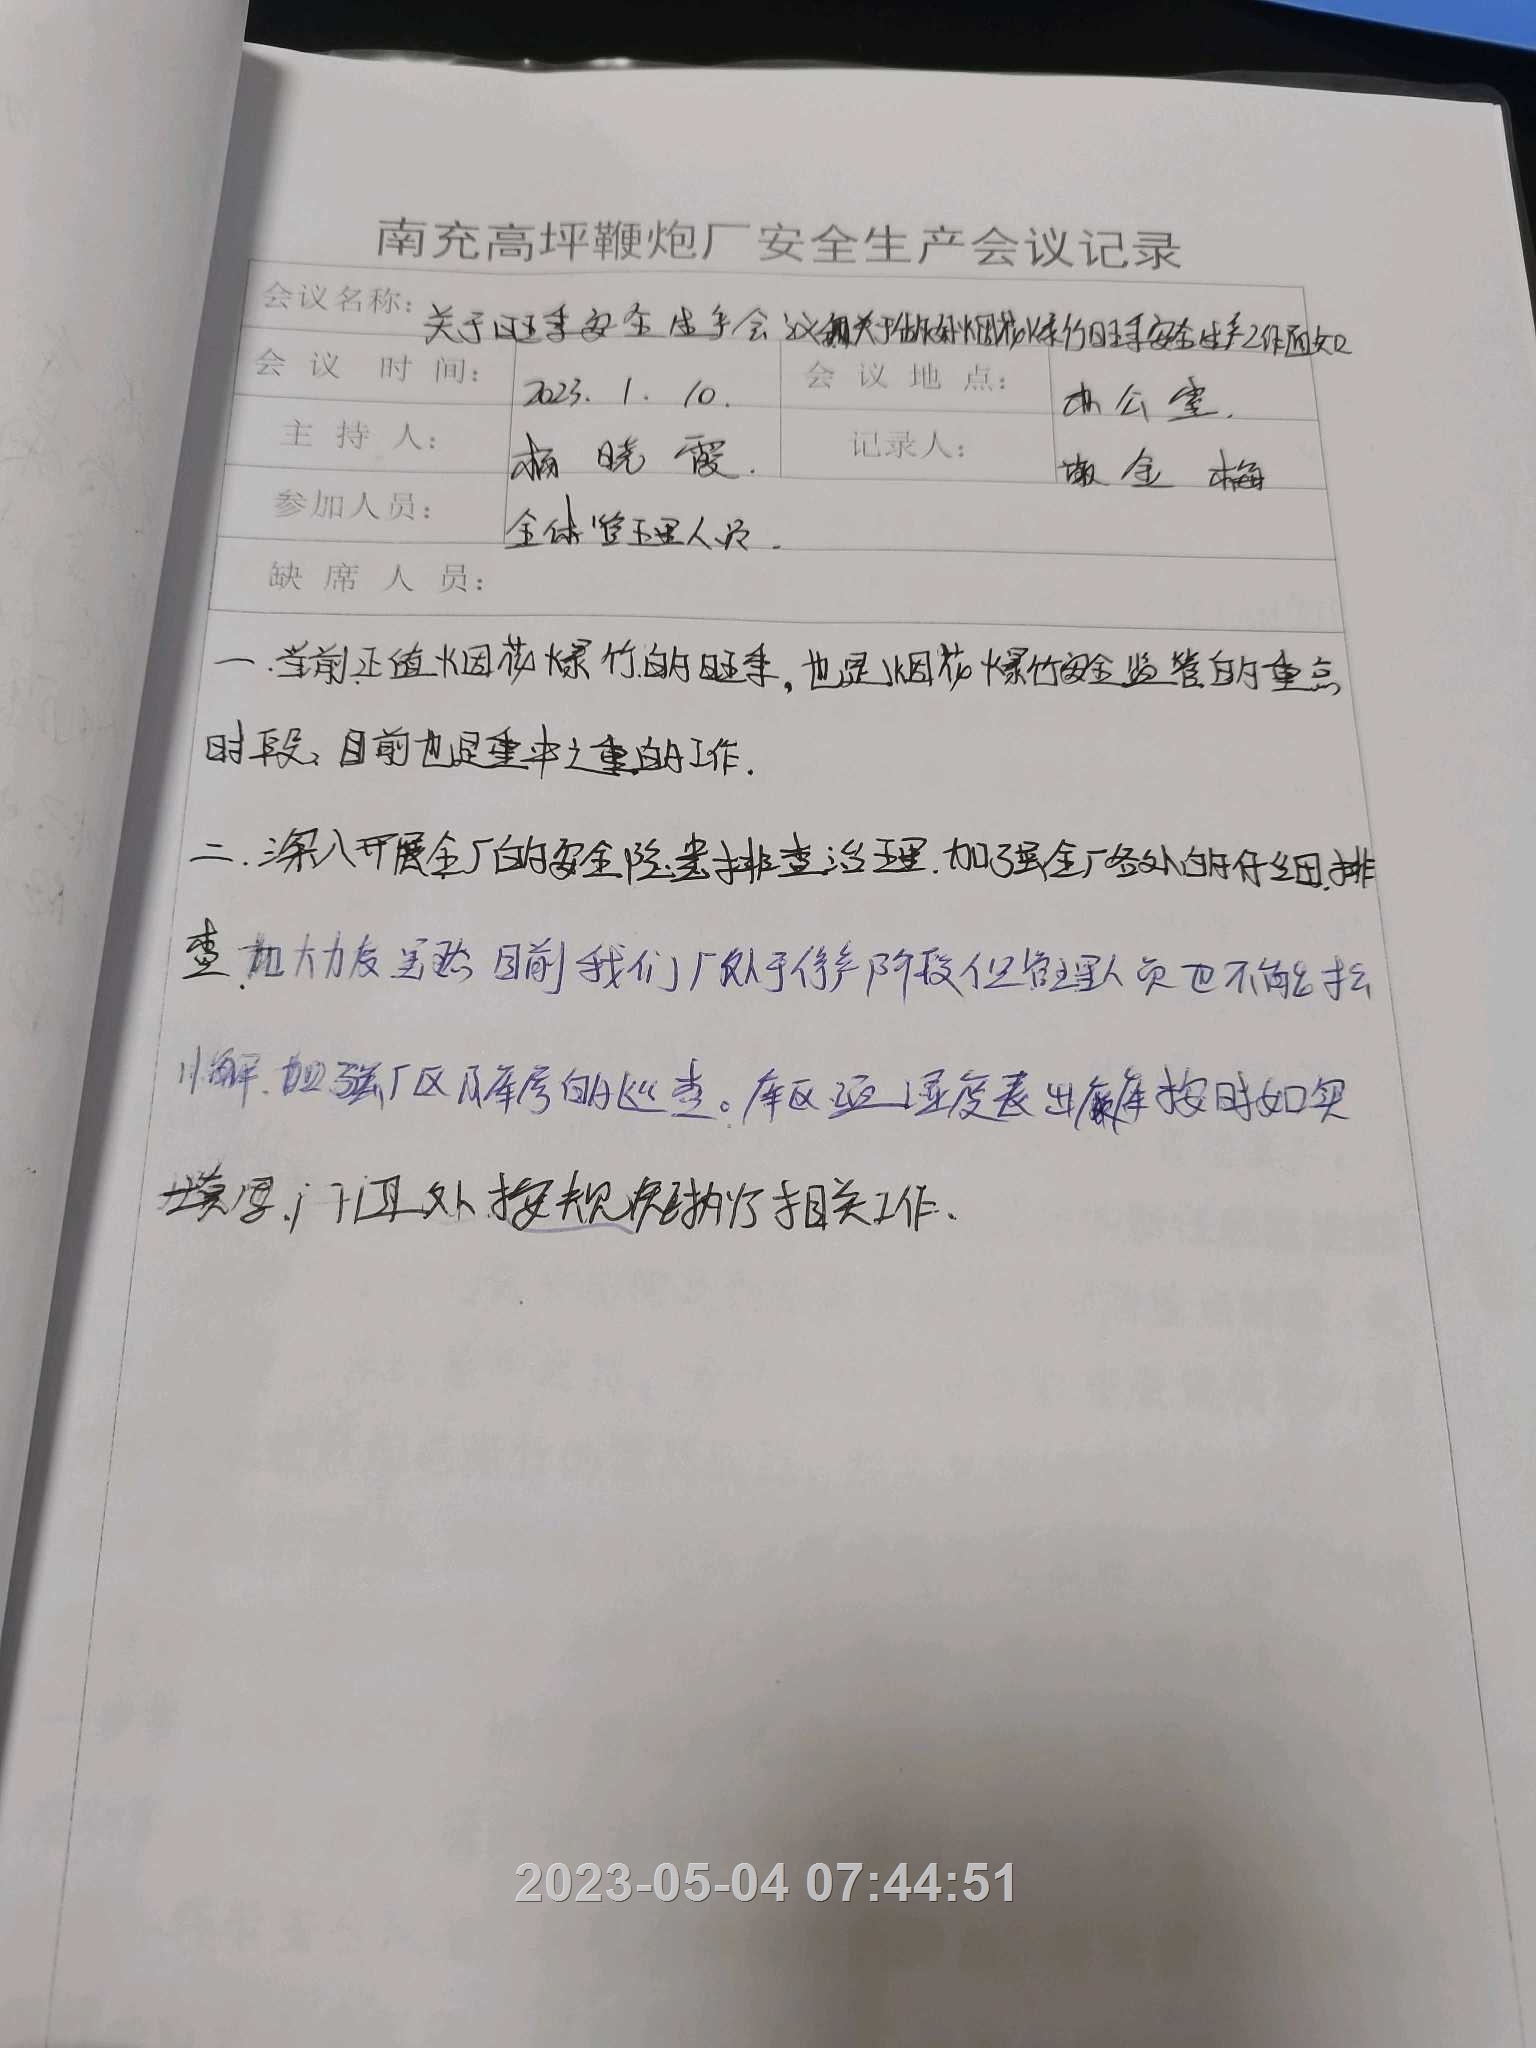 南充高坪鞭炮厂安全生产会议记录
会议名称: 关于旺季安全生产会议 关于做好烟花爆竹旺季安全生产工作
会议时间: 2023.1.10. 会议地点: 办公室.
主持人: 杨晓霞. 记录人: 金梅
参加人员: 全体管理人员.
缺席人员:
一.当前正值烟花爆竹的旺季,也是烟花爆竹安全监管的重点
时段、目前也是重中之重的工作.
二.深入开展全厂的安全隐患排查治理.加强全厂各处的仔细.排
查.加大力度 目前我们厂处于停产阶段但管理人员也不能松
懈.加强厂区及库房的巡查。库区温湿度表出库按时如实
填写.门卫处按规定执行相关工作.
2023-05-04 07:44:51